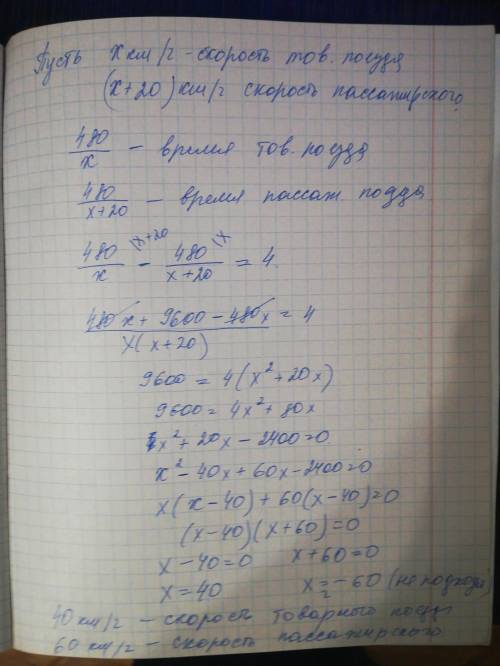 Пусть х км/г - скорость тов. поезда
(х+20) км/г скорость пассажирского
480/x - время тов. поезда
480/x+20 - время пассаж. поезда
480/x \x+20 - 480/x+20 \x = 4
480x + 9600 - 480x / x(x+20) = 4
9600 = 4(x²+20x)
9600 = 4x²+80x
x²+20x-2400=0
x²-40x+60x-2400=0
x(x-40)+60(x-40)=0
(x-40)(x+60)=0
x-40=0 x+60=0
x=40 x₂=-60 (не подходи
40 км/г - скорость товарного поезд
60 км/г - скорость пассажирского